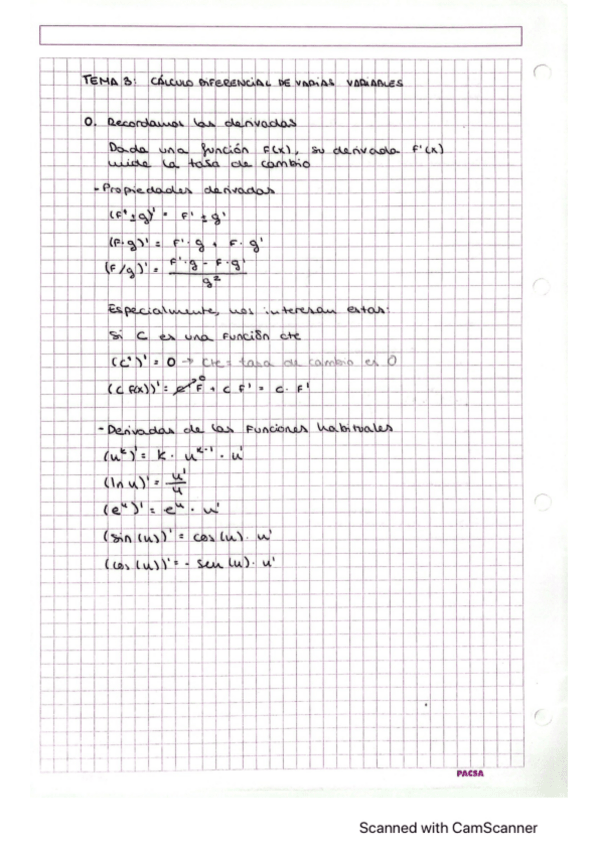 TEMA 3: CÁLCULO DIFERENCIAL DE VARIAS VARIABLES
0. Recordamos las derivadas
Dada una función F(x), su derivada F'(x)
mide la tasa de cambio
- Propiedades derivadas
(F' ± g)' = F' ± g'
(F·g)' = F'·g + F·g'
(F/g)' = F'·g - F·g' / g²
Especialmente, nos interesan estas:
Si C es una función cte
(C')' = 0 → Cte = tasa de cambio es 0
(C F(x))' = c'⁰ F + C F' = C · F'
- Derivadas de las Funciones habituales
(uᵏ)' = k · uᵏ⁻¹ · u'
(ln u)' = u'/u
(eᵘ)' = eᵘ · u'
(sin (u))' = cos (u) · u'
(cos (u))' = - sen (u) · u'
PACSA
Scanned with CamScanner